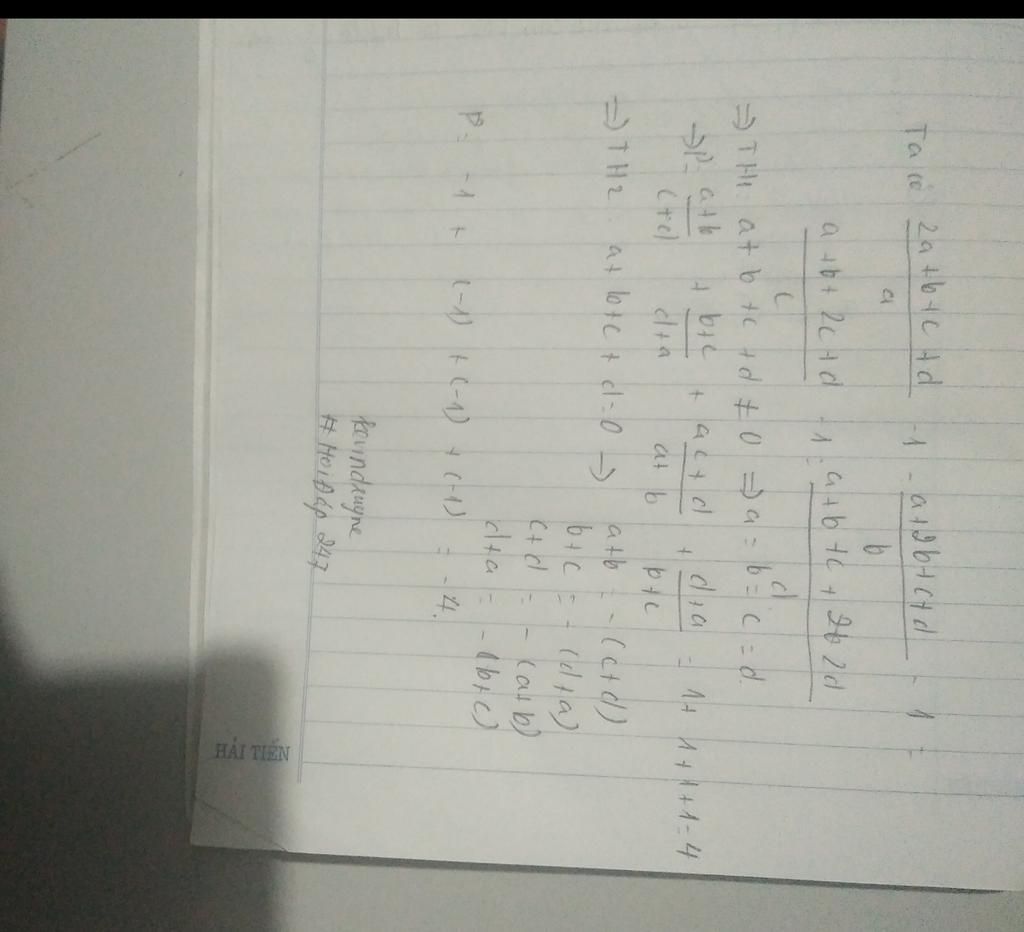 Ta có 2a+b+c+d/a -1 = a+2b+c+d/b -1 =
a+b+2c+d/c -1 = a+b+c+2d/d
=> TH1: a+b+c+d ≠ 0 => a=b=c=d
=> P= a+b/c+d + b+c/d+a + c+d/a+b + d+a/b+c = 1+1+1+1=4
=> TH2: a+b+c+d=0 -> a+b = -(c+d)
b+c = -(d+a)
c+d = -(a+b)
d+a = -(b+c)
P= -1 + (-1) + (-1) + (-1) = -4.
# HoiĐáp 247
HẢI TIẾN